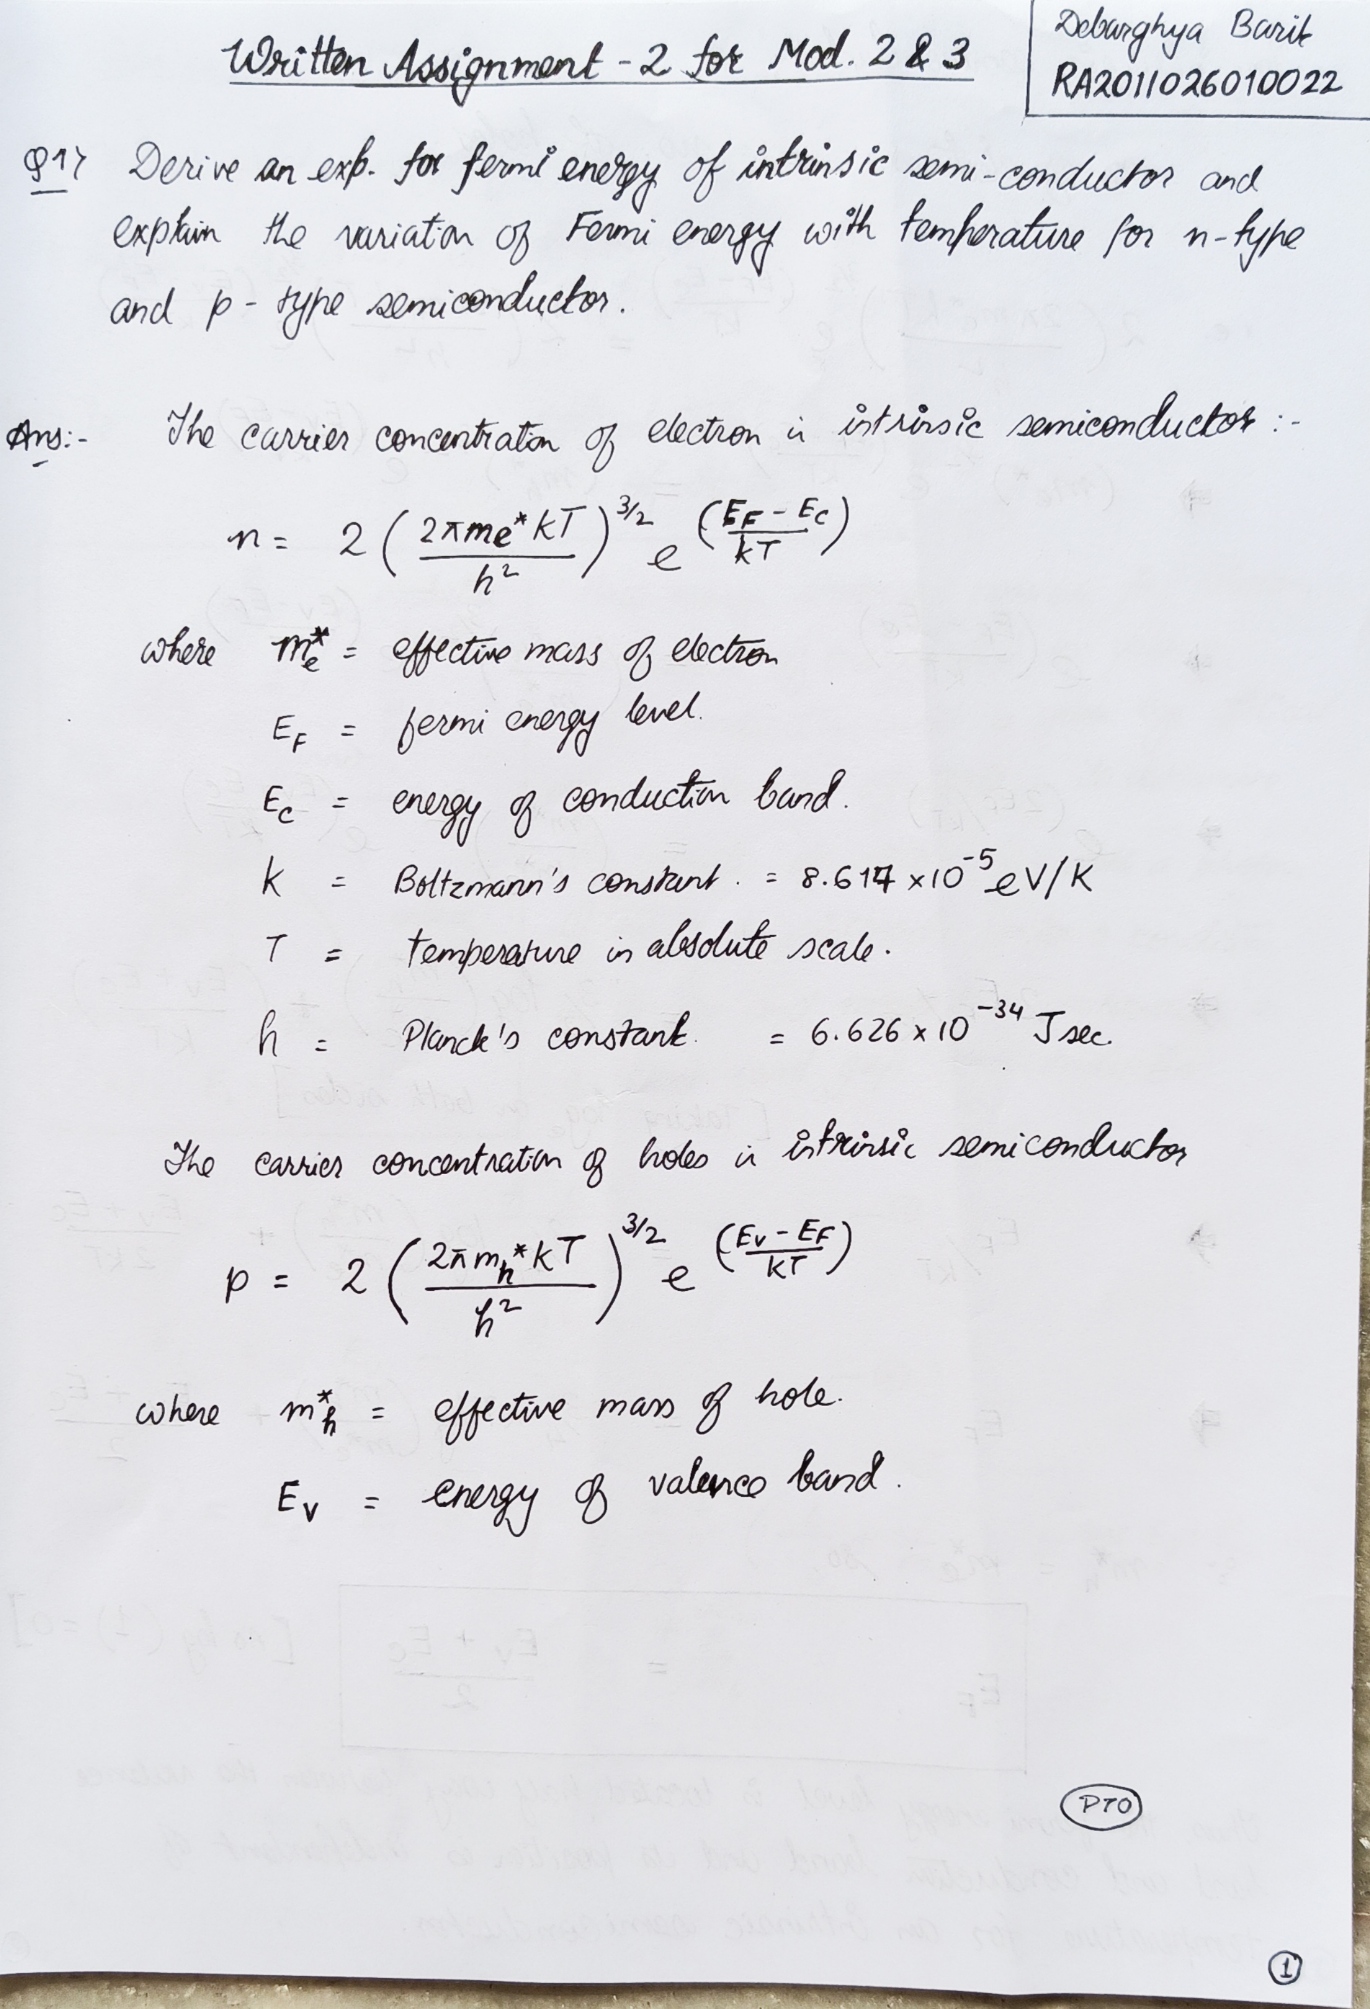 Written Assignment - 2 for Mod. 2 & 3
Debarghya Barik
RA2011026010022
Q1> Derive an exp. for fermi energy of intrinsic semi-conductor and
explain the variation of Fermi energy with temperature for n-type
and p-type semiconductor.
Ans:- The carrier concentration of electron in intrinsic semiconductor :-
n = 2 (2πme* kT / h²)^3/2 e^((EF - Ec) / kT)
where me* = effective mass of electron
EF = fermi energy level.
Ec = energy of conduction band.
k = Boltzmann's constant. = 8.617 x 10^-5 eV/K
T = temperature in absolute scale.
h = Planck's constant. = 6.626 x 10^-34 J sec.
The carrier concentration of holes in intrinsic semiconductor
p = 2 (2πmh* kT / h²)^3/2 e^((Ev - EF) / kT)
where mh* = effective mass of hole.
Ev = energy of valence band.
PTO
1